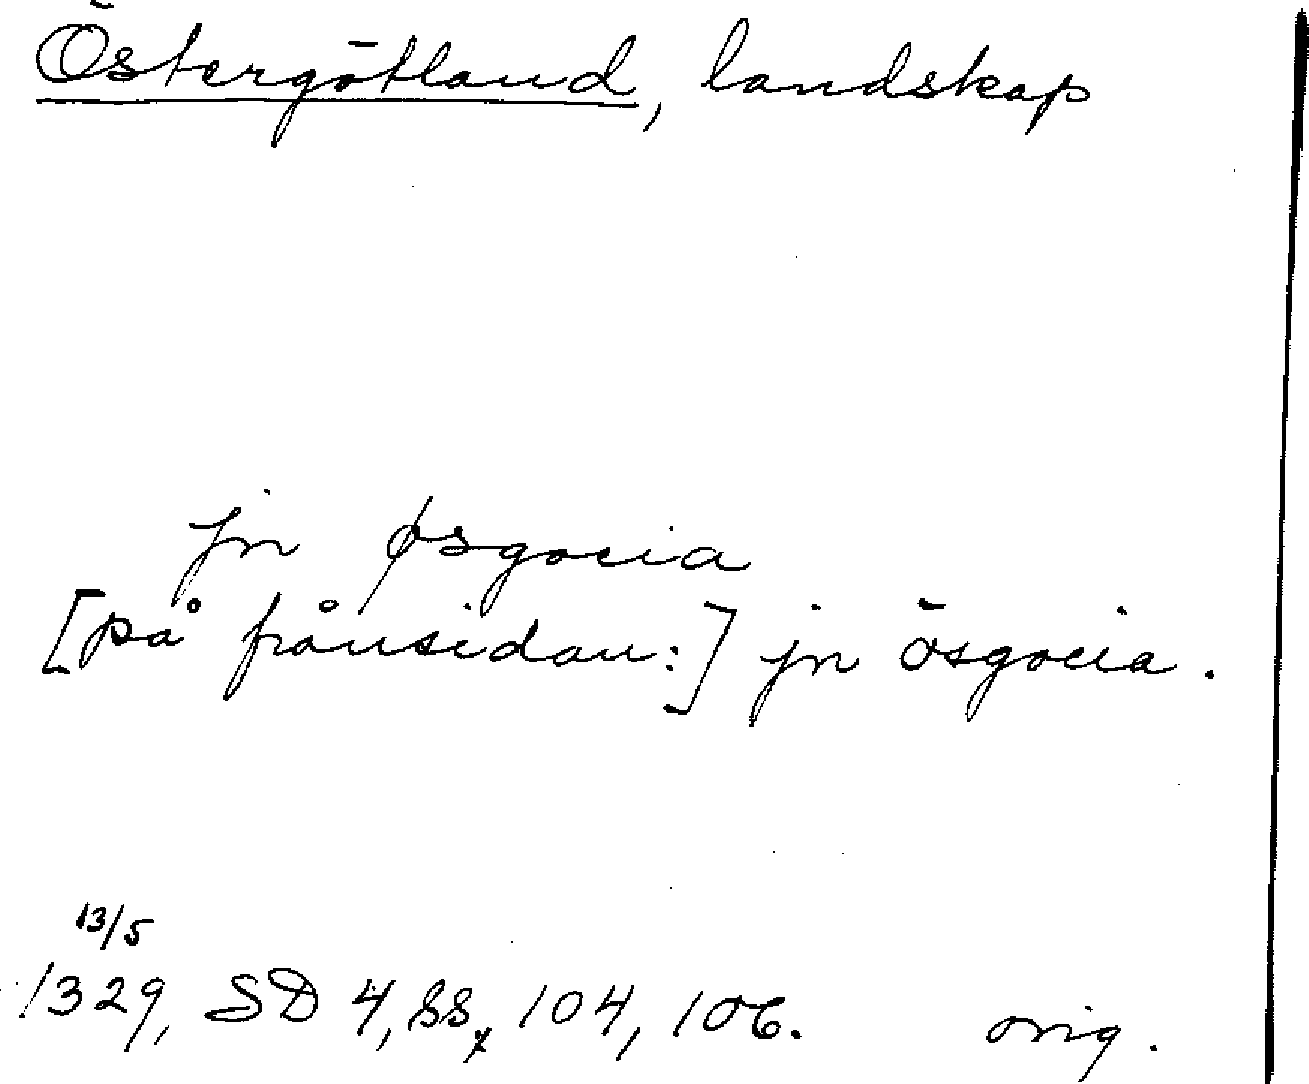 Östergötland, landskap
jn øsgocia
[på frånsidan:] jn ösgocia.
13/5
1329, SD 4, ss. 104, 106. orig.